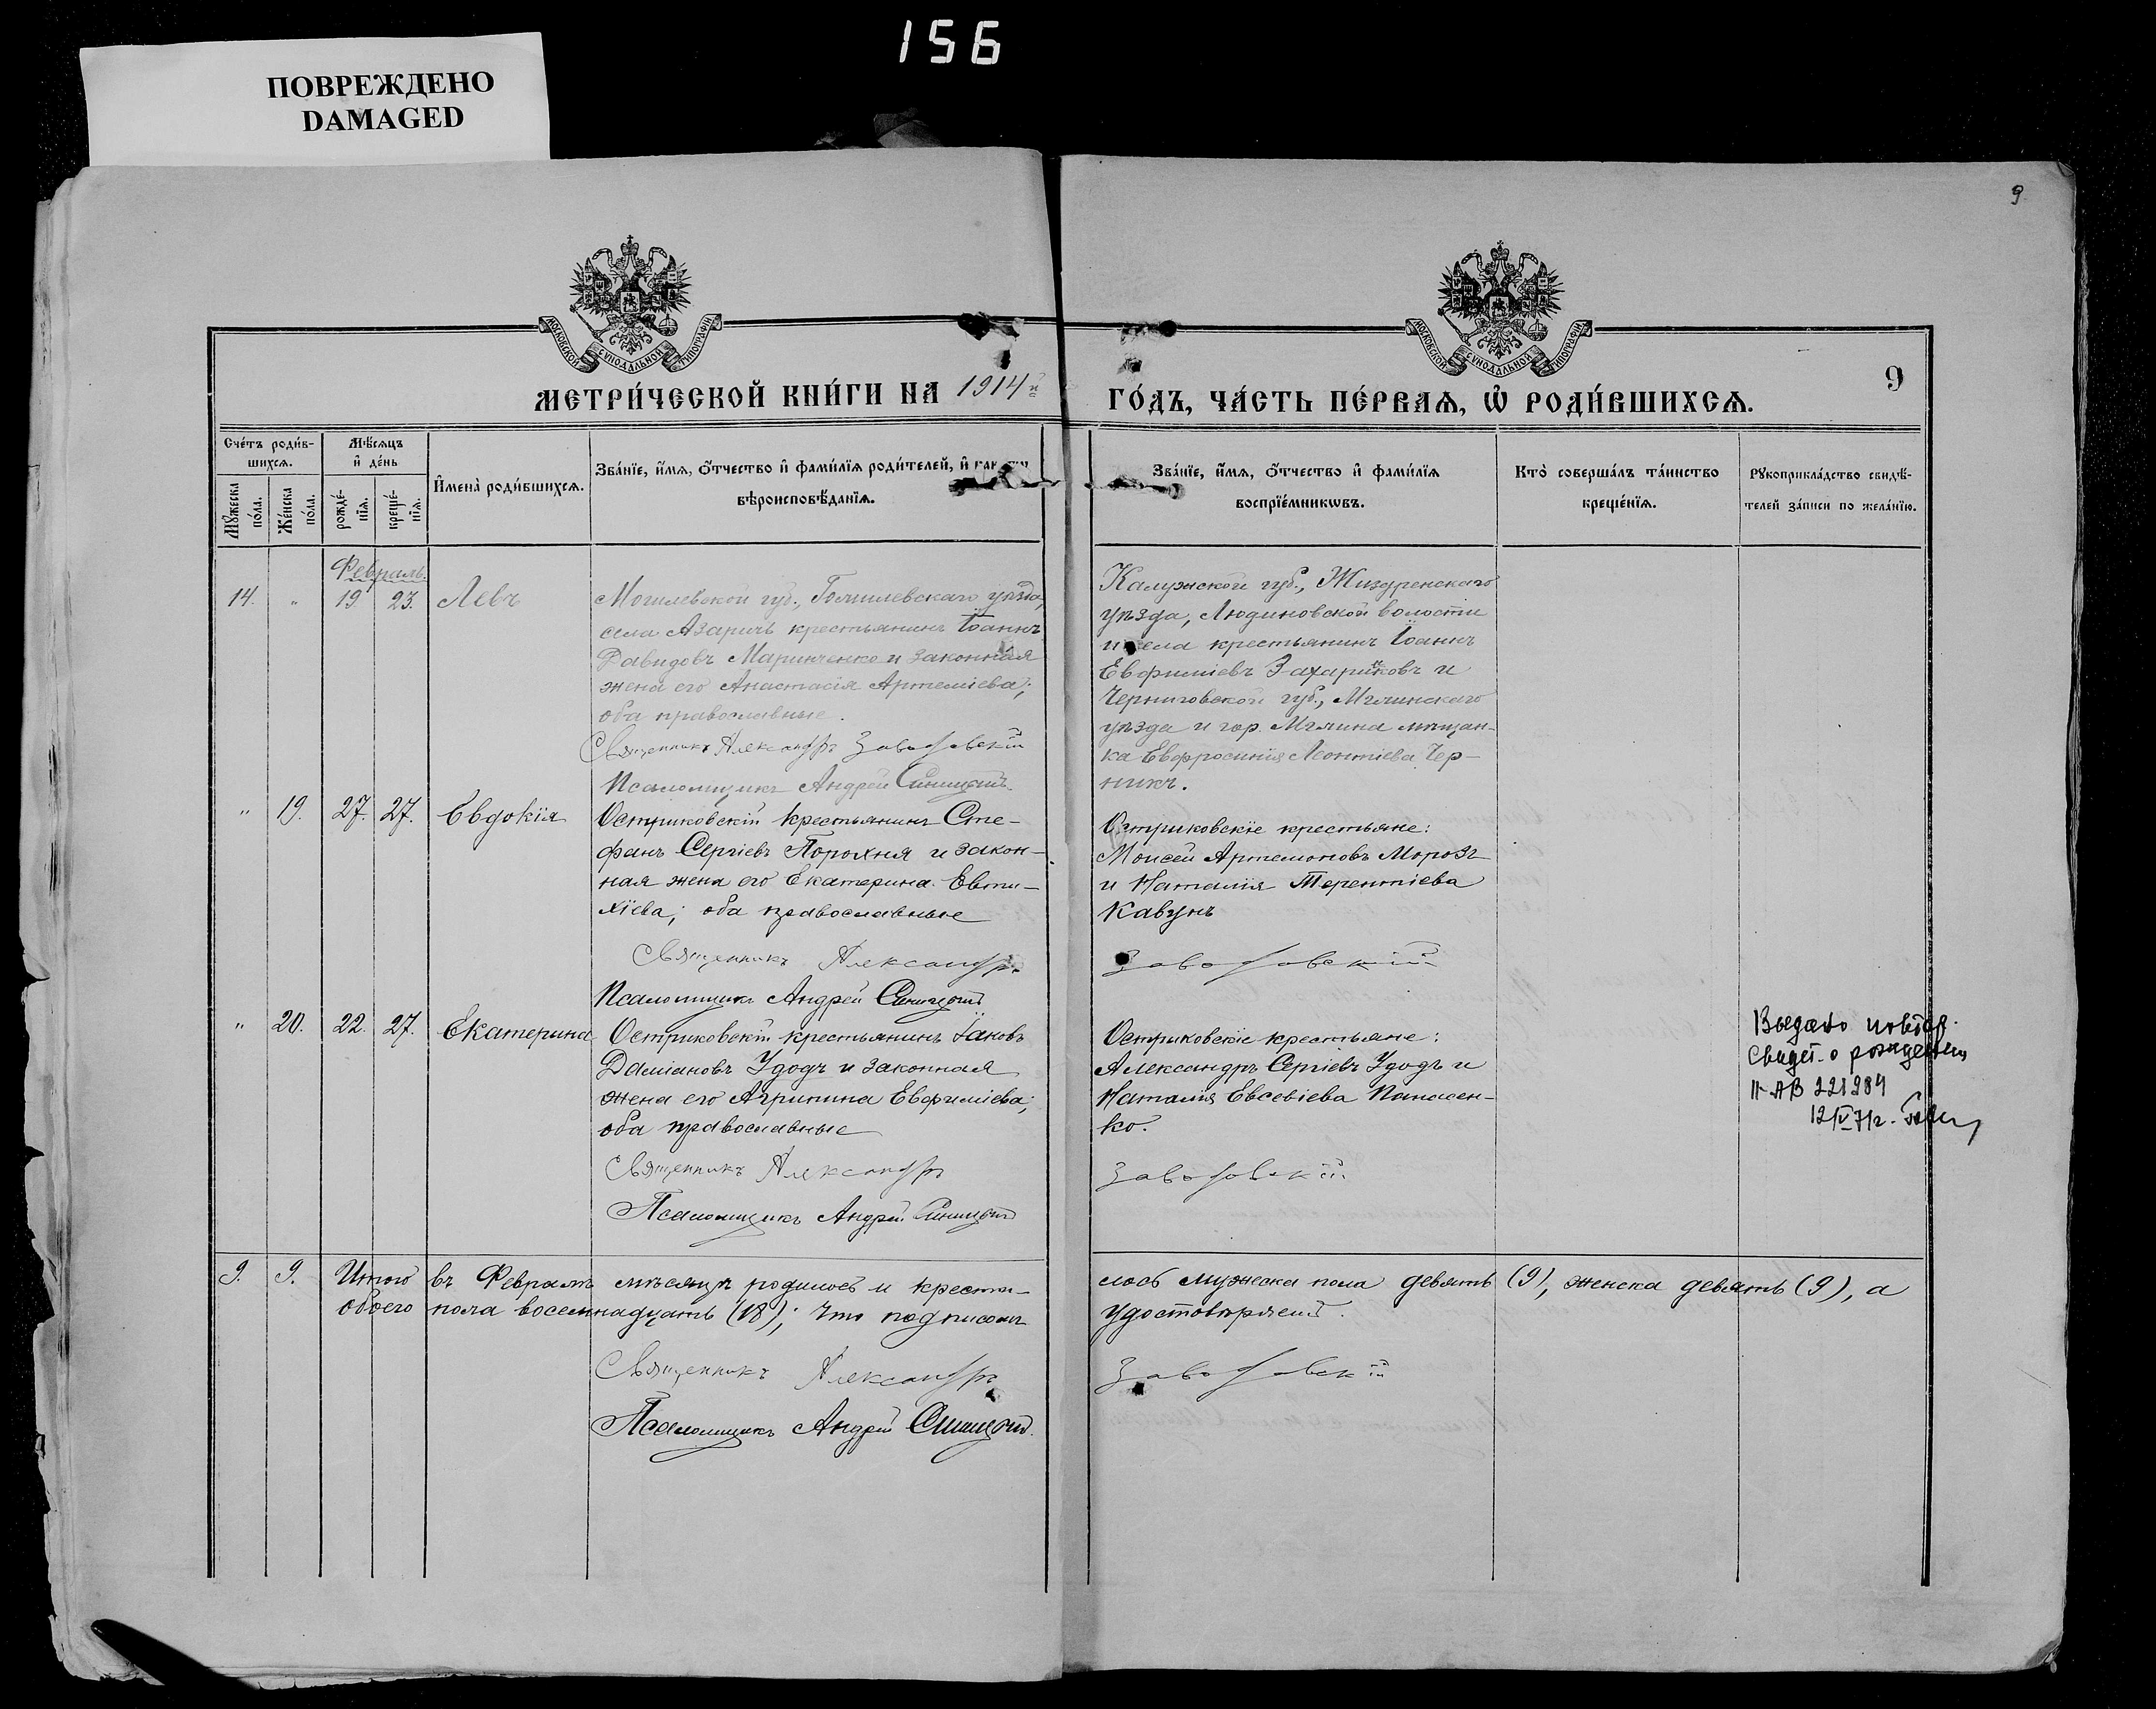 156
ПОВРЕЖДЕНО
DAMAGED
9
МОСКОВСКОЙ СѴНОДАЛЬНОЙ ТИПОГРАФІИ
МОСКОВСКОЙ СѴНОДАЛЬНОЙ ТИПОГРАФІИ
МЕТРИ́ЧЕСКОЙ КНИ́ГИ НА 1914й
ГО́ДЪ, ЧА́СТЬ ПЕ́РВАѦ, Ѡ҆ РОДИ́ВШИХСѦ.
9
Сче́тъ роди́в-
шихсѧ.
Мѣ́сѧцъ
и҆ де́нь
Мꙋ́жеска по́ла.
Же́нска по́ла.
рожде́-
нїѧ.
креще́-
нїѧ.
И҆мена̀ роди́вшихсѧ.
Зва́нїе, и҆́мѧ, ѻ҆́тчество и҆ фами́лїѧ роди́телей, и҆
вѣроисповѣ́данїѧ.
Зва́нїе, и҆́мѧ, ѻ҆́тчество и҆ фами́лїѧ
воспрїе́мникѡвъ.
Кто̀ соверша́лъ та́инство
креще́нїѧ.
Рꙋкоприкла́дство свидѣ́-
телей за́писи по жела́нїю.
Февраль.
14. " 19 23. Левъ
Могилевской губ., Гомилевскаго уѣзда,
села Азаричъ крестьянинъ Іоаннъ
Давидовъ Маринченко и законная
жена его Анастасія Артеміева;
оба православные.
Священникъ Александръ Заводовскій
Псаломщикъ Андрей Синицкій.
Калужской губ., Жиздренскаго
уѣзда, Людиновской волости
и села крестьянинъ Іоаннъ
Евфиміевъ Захариковъ и
Черниговской губ., Мглинскаго
уѣзда и гор. Мглина мѣщан-
ка Евфросинія Леонтіева Чер-
никъ.
" 19. 27. 27. Евдокія
Остриковскій крестьянинъ Сте-
фанъ Сергіевъ Порохня и закон-
ная жена его Екатерина Евти-
хіева; оба православные
Священникъ Александръ
Псаломщикъ Андрей Синицкій
Остриковскіе крестьяне:
Моисей Артемоновъ Морозъ
и Наталія Терентіева
Кавунъ
Заводовскій
" 20. 22. 27. Екатерина
Остриковскій крестьянинъ Іаковъ
Даміановъ Удодъ и законная
жена его Агрипина Евфиміева;
оба православные
Священникъ Александръ
Псаломщикъ Андрей Синицкій
Остриковскіе крестьяне:
Александръ Сергіевъ Удодъ и
Наталія Евсевіева Панасен-
ко.
Заводовскій
Выдано повтор.
свидет. о рождении
II-АВ 221284
12/V-71г.
9. 9. Итого въ Февралѣ мѣсяцѣ родилось и крести-
обоего пола восемнадцать (18); что подписомъ
Священникъ Александръ
Псаломщикъ Андрей Синицкій.
лось мужеска пола девять (9), женска девять (9), а
удостовѣряемъ.
Заводовскій